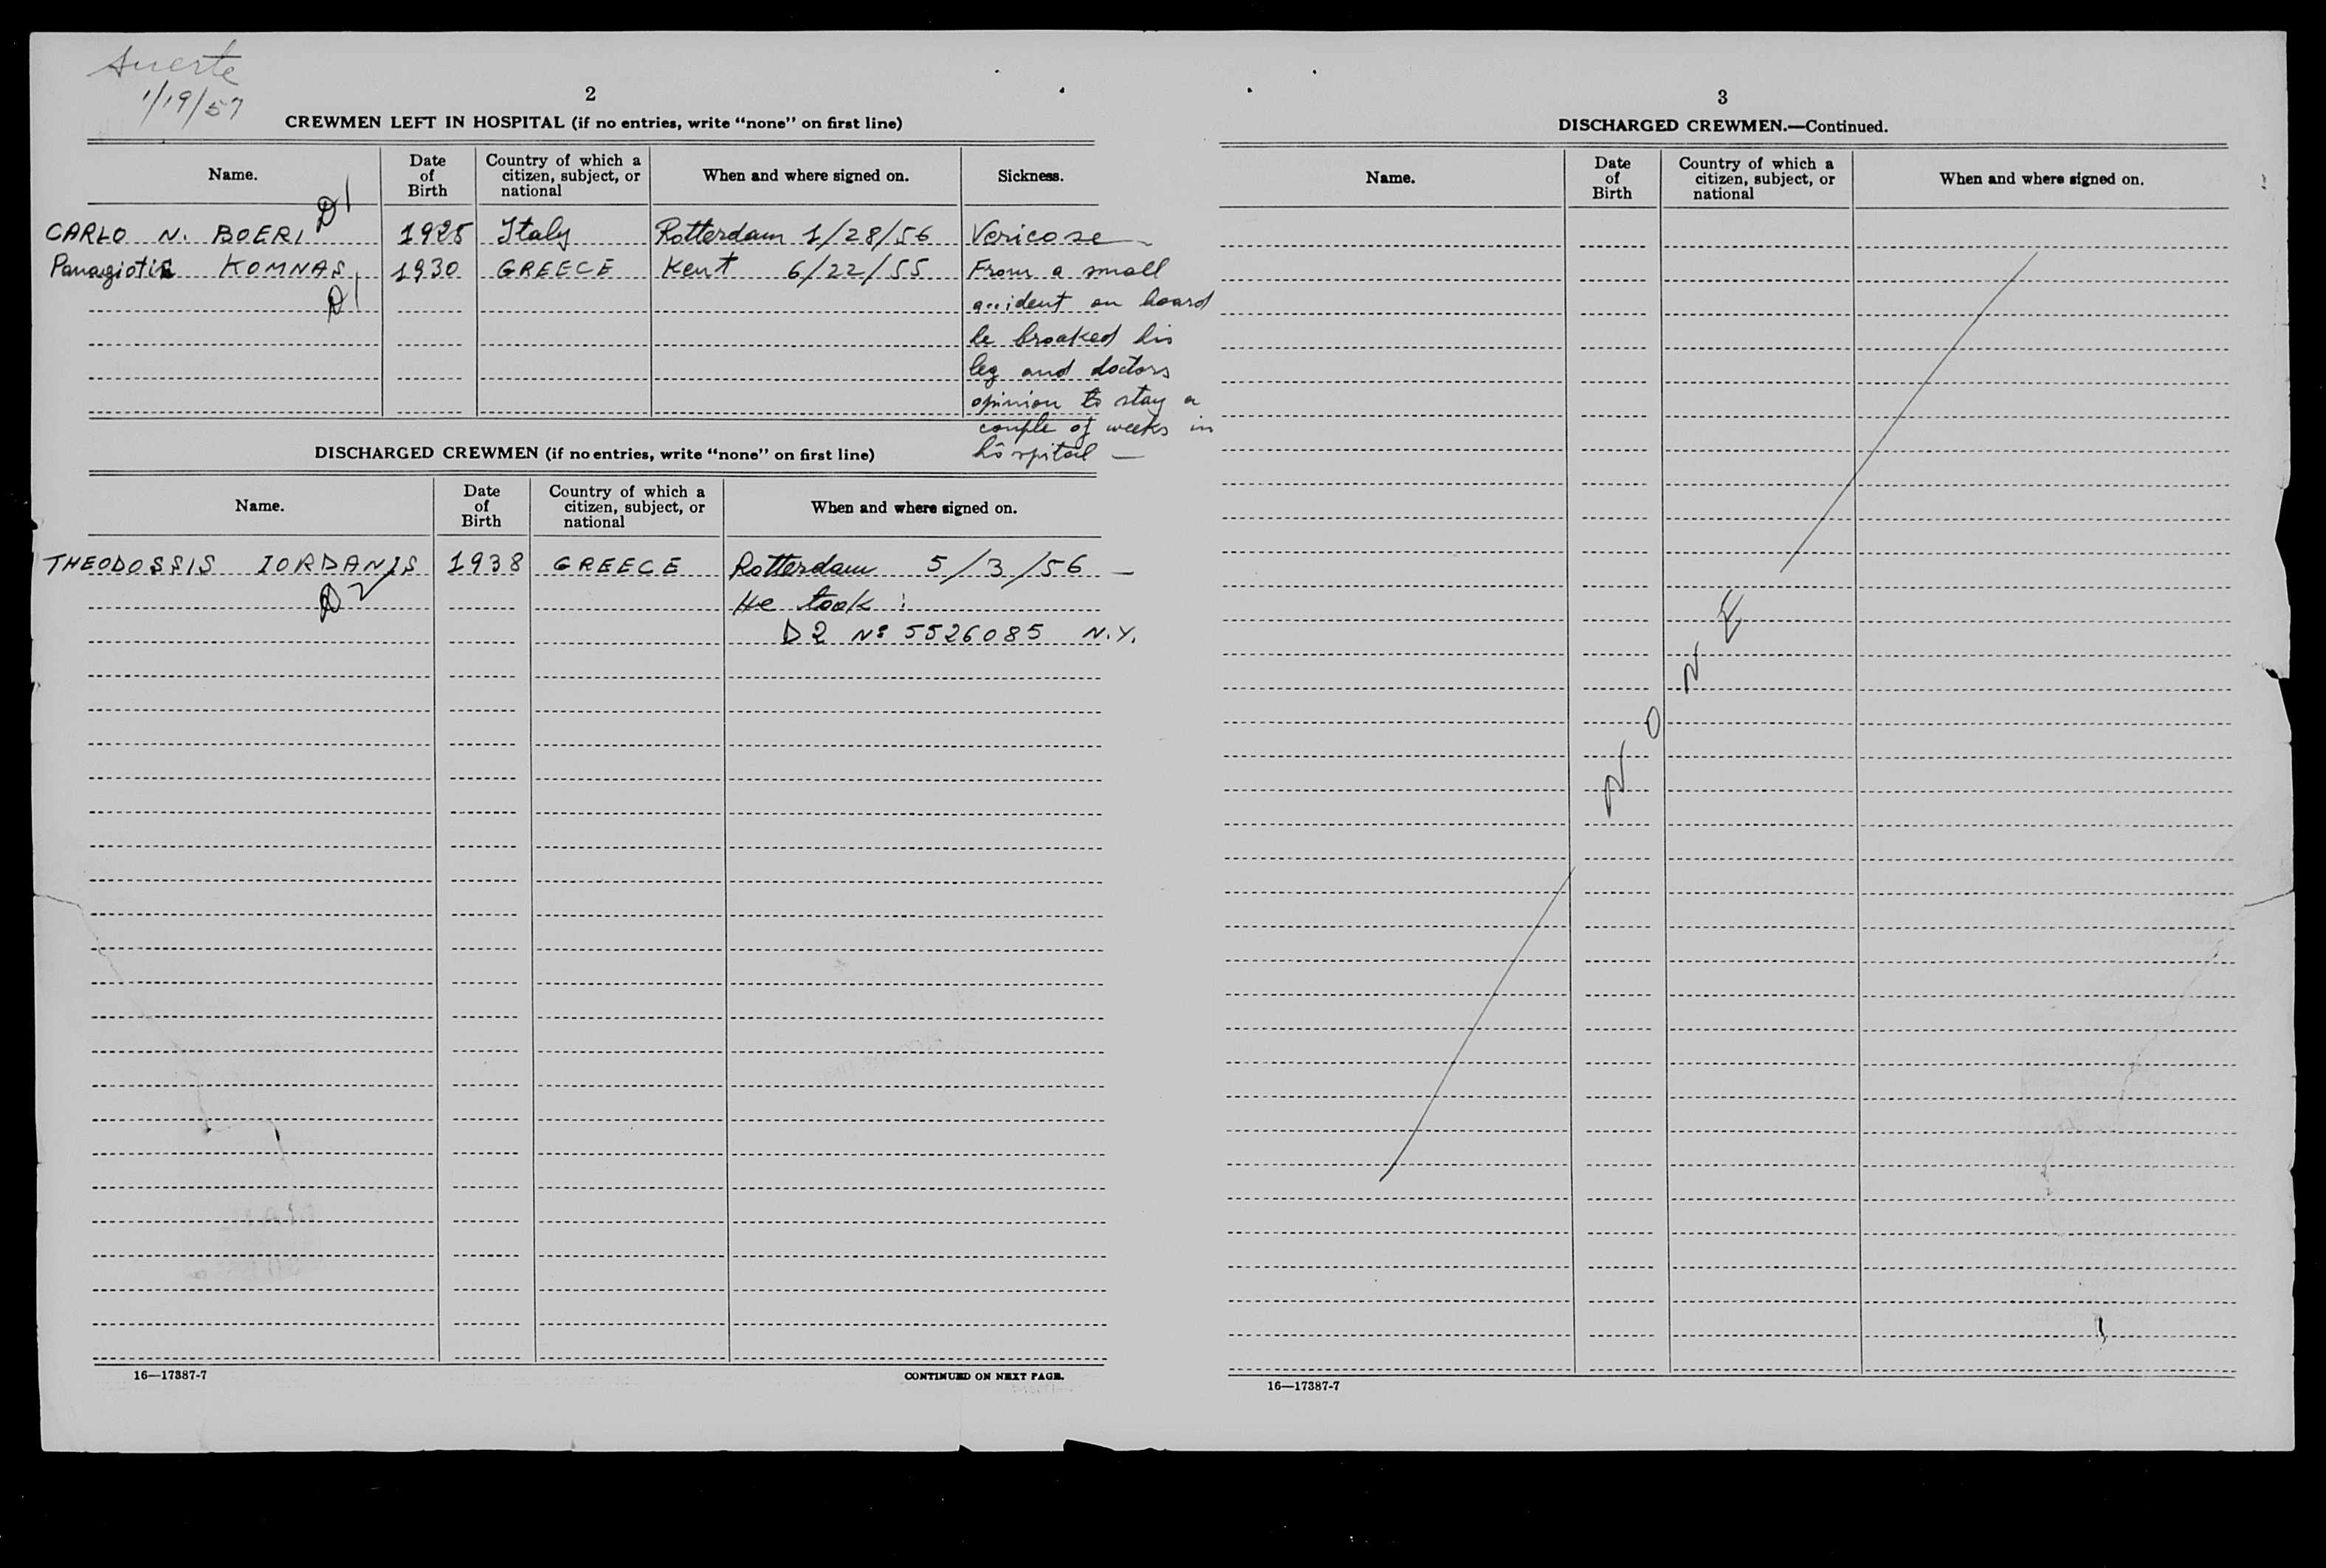 Suerte
1/19/57
2
CREWMEN LEFT IN HOSPITAL (if no entries, write “none” on first line)
Name. Date of Birth Country of which a citizen, subject, or national When and where signed on. Sickness.
D1
CARLO N. BOERI 1925 Italy Rotterdam 1/28/56 Vericose
Panagiotis KOMNAS 1930 GREECE Kent 6/22/55 From a small
D1 accident on board
he broaked his
leg and doctors
opinion to stay a
couple of weeks in
hospital —
DISCHARGED CREWMEN (if no entries, write “none” on first line)
Name. Date of Birth Country of which a citizen, subject, or national When and where signed on.
THEODOSSIS IORDANIS 1938 GREECE Rotterdam 5/3/56 —
D2 He took :
D2 Nº 5526085 N.Y.
16—17387-7 CONTINUED ON NEXT PAGE.
3
DISCHARGED CREWMEN.—Continued.
Name. Date of Birth Country of which a citizen, subject, or national When and where signed on.
NONE
16—17387-7